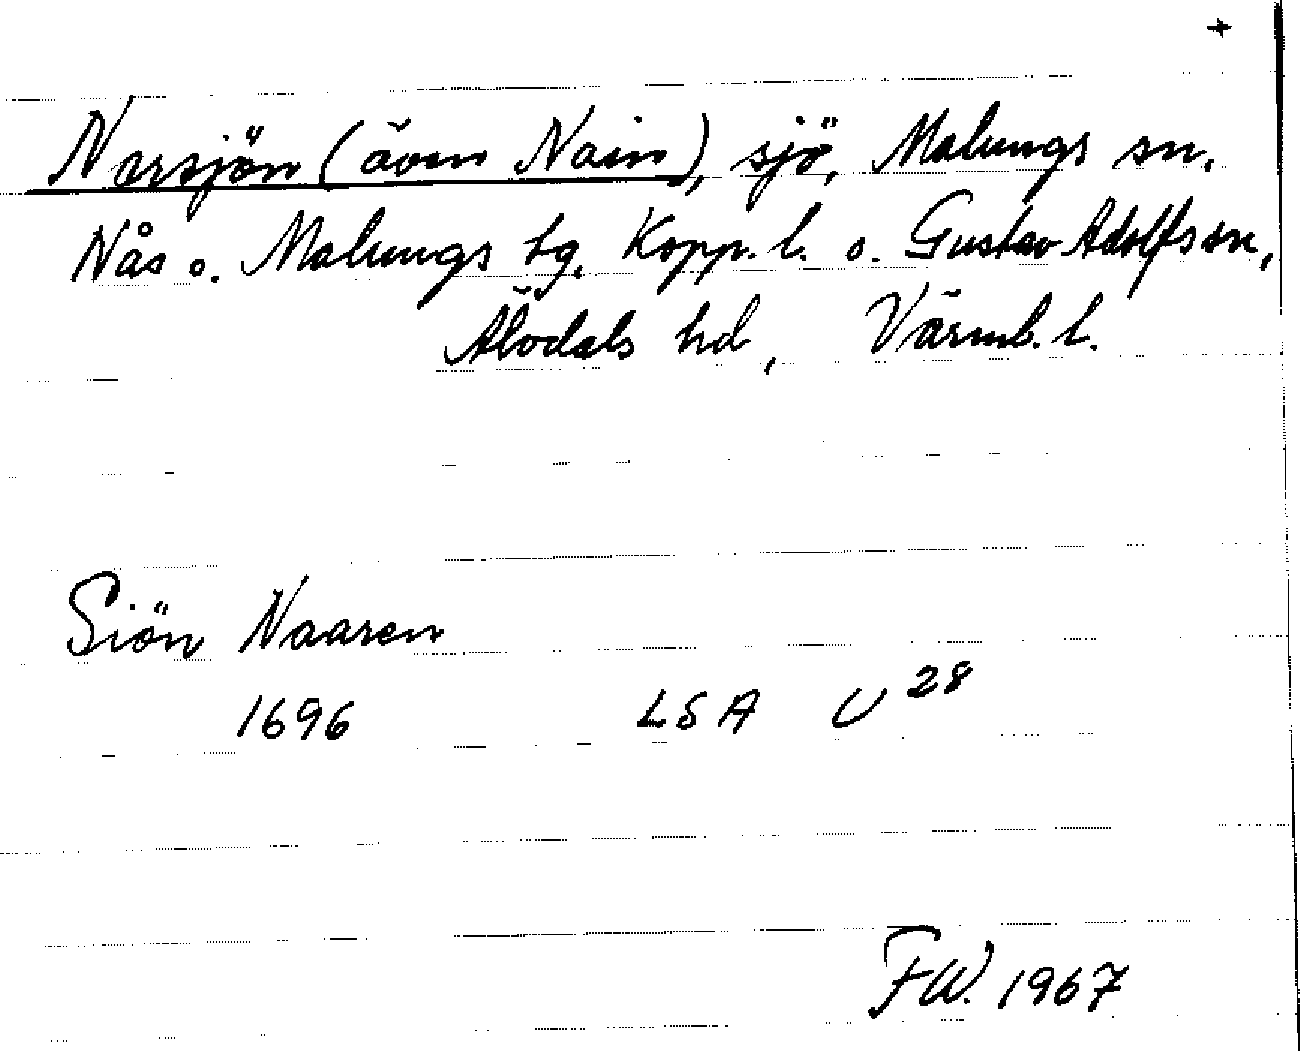 +
Narsjön (även Nain), sjö, Malungs sn.
Nås o. Malungs tg. Kopp. l. o. Gustav Adolfs sn,
Älvdals hd, Värml. l.
Siön Naaren
1696 LSA U 28
FW. 1967